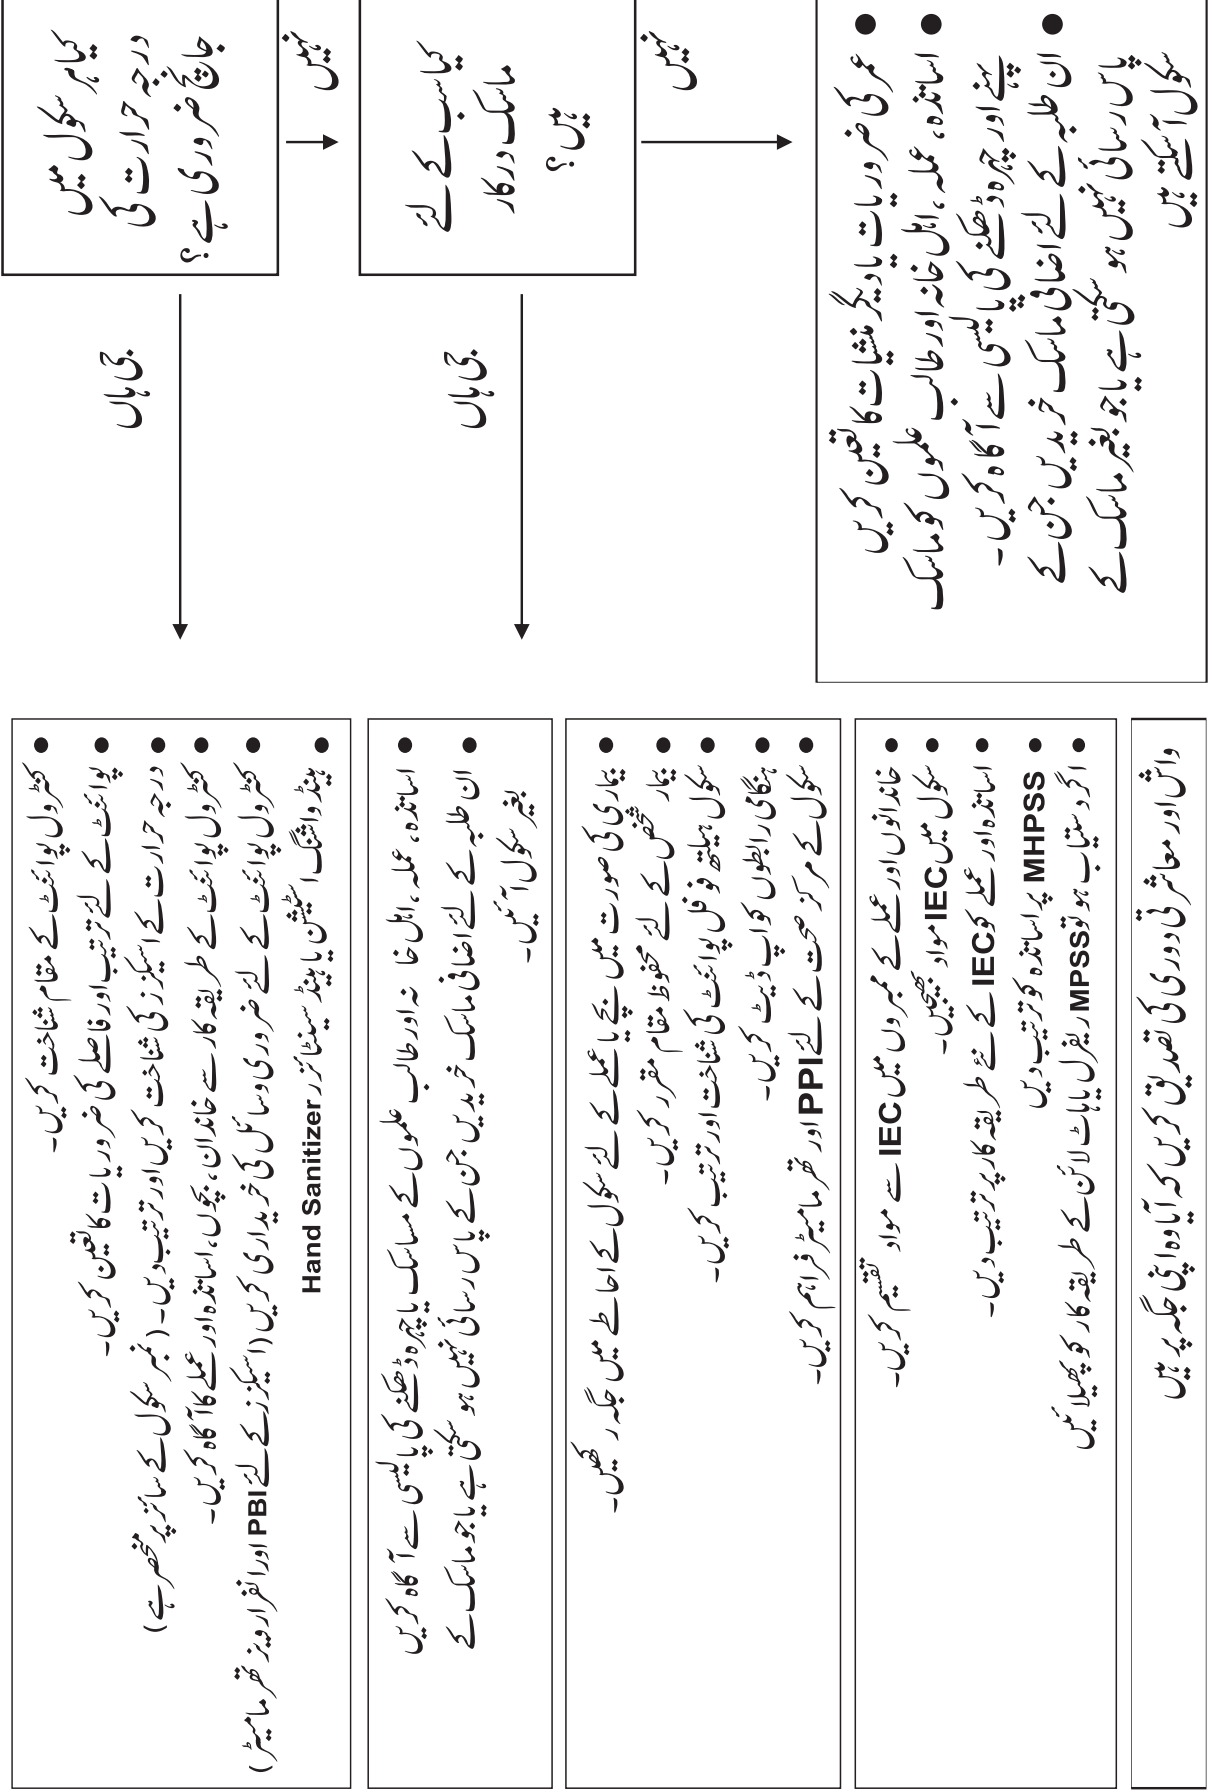 کیا ہر سکول میں
درجہ حرارت کی
جانچ ضروری ہے؟
نہیں
جی ہاں
کیا سب کے لئے
ماسک درکار
ہیں؟
نہیں
جی ہاں
● عمر کی ضروریات یا دیگر منشیات کا تعین کریں
● اساتذہ، عملہ، اہل خانہ اور طالب علموں کو ماسک
پہنے اور چہرہ ڈھکنے کی پالیسی سے آگاہ کریں۔
● ان طلبہ کے لئے اضافی ماسک خریدیں جن کے
پاس رسائی نہیں ہو سکتی ہے یا جو بغیر ماسک کے
سکول آسکتے ہیں
● کنٹرول پوائنٹ کے مقام شناخت کریں۔
● پوائنٹ کے لئے ترتیب اور فاصلے کی ضروریات کا تعین کریں۔
● درجہ حرارت کے اسیکنرز کی شناخت کریں اور ترتیب دیں۔ (نمبر سکول کے سائز پر منحصر ہے)
● کنٹرول پوائنٹ کے طریقہ کار سے خاندان، بچوں، اساتذہ اور عملے کا آگاہ کریں۔
● کنٹرول پوائنٹ کے لئے ضروری وسائل کی خریداری کریں (اسیکنرز کے لئے PBI اور انفرارویز تھرمامیٹر)
● ہینڈ واشنگ اسٹیشن یا ہینڈ سینٹائزر Hand Sanitizer
● اساتذہ، عملہ، اہل خانہ اور طالب علموں کے مساسک یا چہرہ ڈھکنے کی پالیسی سے آگاہ کریں
● ان طلبہ کے لئے اضافی ماسک خریدیں جن کے پاس رسائی نہیں ہو سکتی ہے یا جو ماسک کے
بغیر سکول آئیں۔
● بیماری کی صورت میں بچے یا عملے کے لئے سکول کے احاطے میں جگہ رکھیں۔
● بیمار شخص کے لئے محفوظ مقام مقرر کریں۔
● سکول ہیلتھ فوفل پوائنٹ کی شناخت اور ترتیب کریں۔
● ہنگامی رابطوں کو اپ ڈیٹ کریں۔
● سکول کے مرکز صحت کے لئے PPI اور تھرمامیٹر فراہم کریں۔
● خاندانوں اور عملے کے ممبروں میں IEC سے مواد تقسیم کریں۔
● سکول میں IEC مواد بھیجیں۔
● اساتذہ اور عملے کو IEC کے نئے طریقہ کار پر ترتیب دیں۔
● MHPSS پر اساتذہ کو ترتیب دیں
● اگر دستیاب ہو تو MPSS ریفرل یا ہاٹ لائن کے طریقہ کار کو پھیلائیں
واش اور معاشرتی دوری کی تصدیق کریں کہ آیا وہ اپنی جگہ پر ہیں